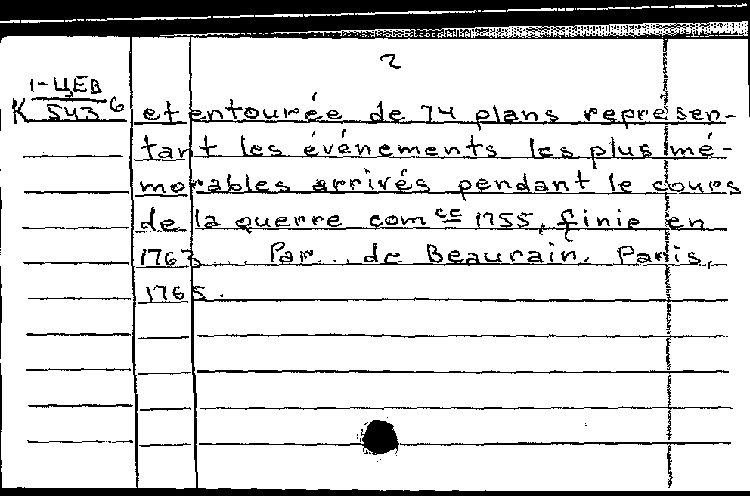 2
1-ЦЕВ
K 543 6
et entourée de 74 plans représen-
tant les événements les plus mé-
morables arrivés pendant le cours
de la querre com ce 1755, finie en
1763... Par... de Beaurain. Paris,
1765.